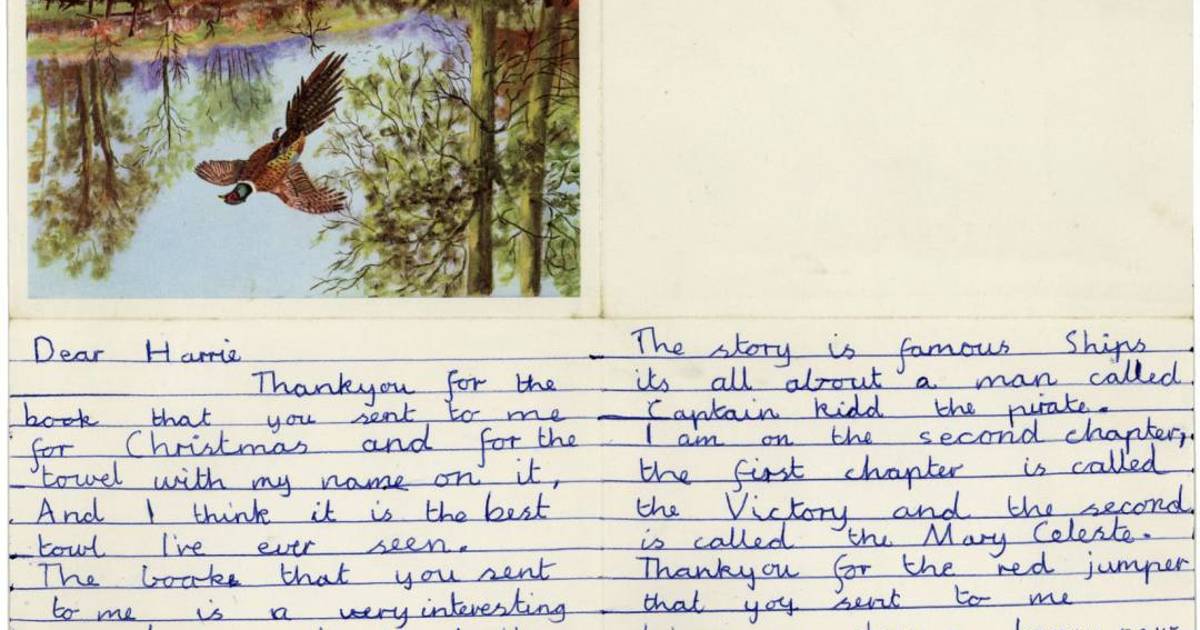 Dear Harrie
Thankyou for the
book that you sent to me
for Christmas and for the
towel with my name on it,
And I think it is the best
towl I've ever seen.
The book that you sent
to me is a very interesting
The story is famous Ships
its all about a man called
Captain kidd the pirate.
I am on the second chapter,
the first chapter is called
the Victory and the second
is called the Mary Celeste.
Thankyou for the red jumper
that you sent to me